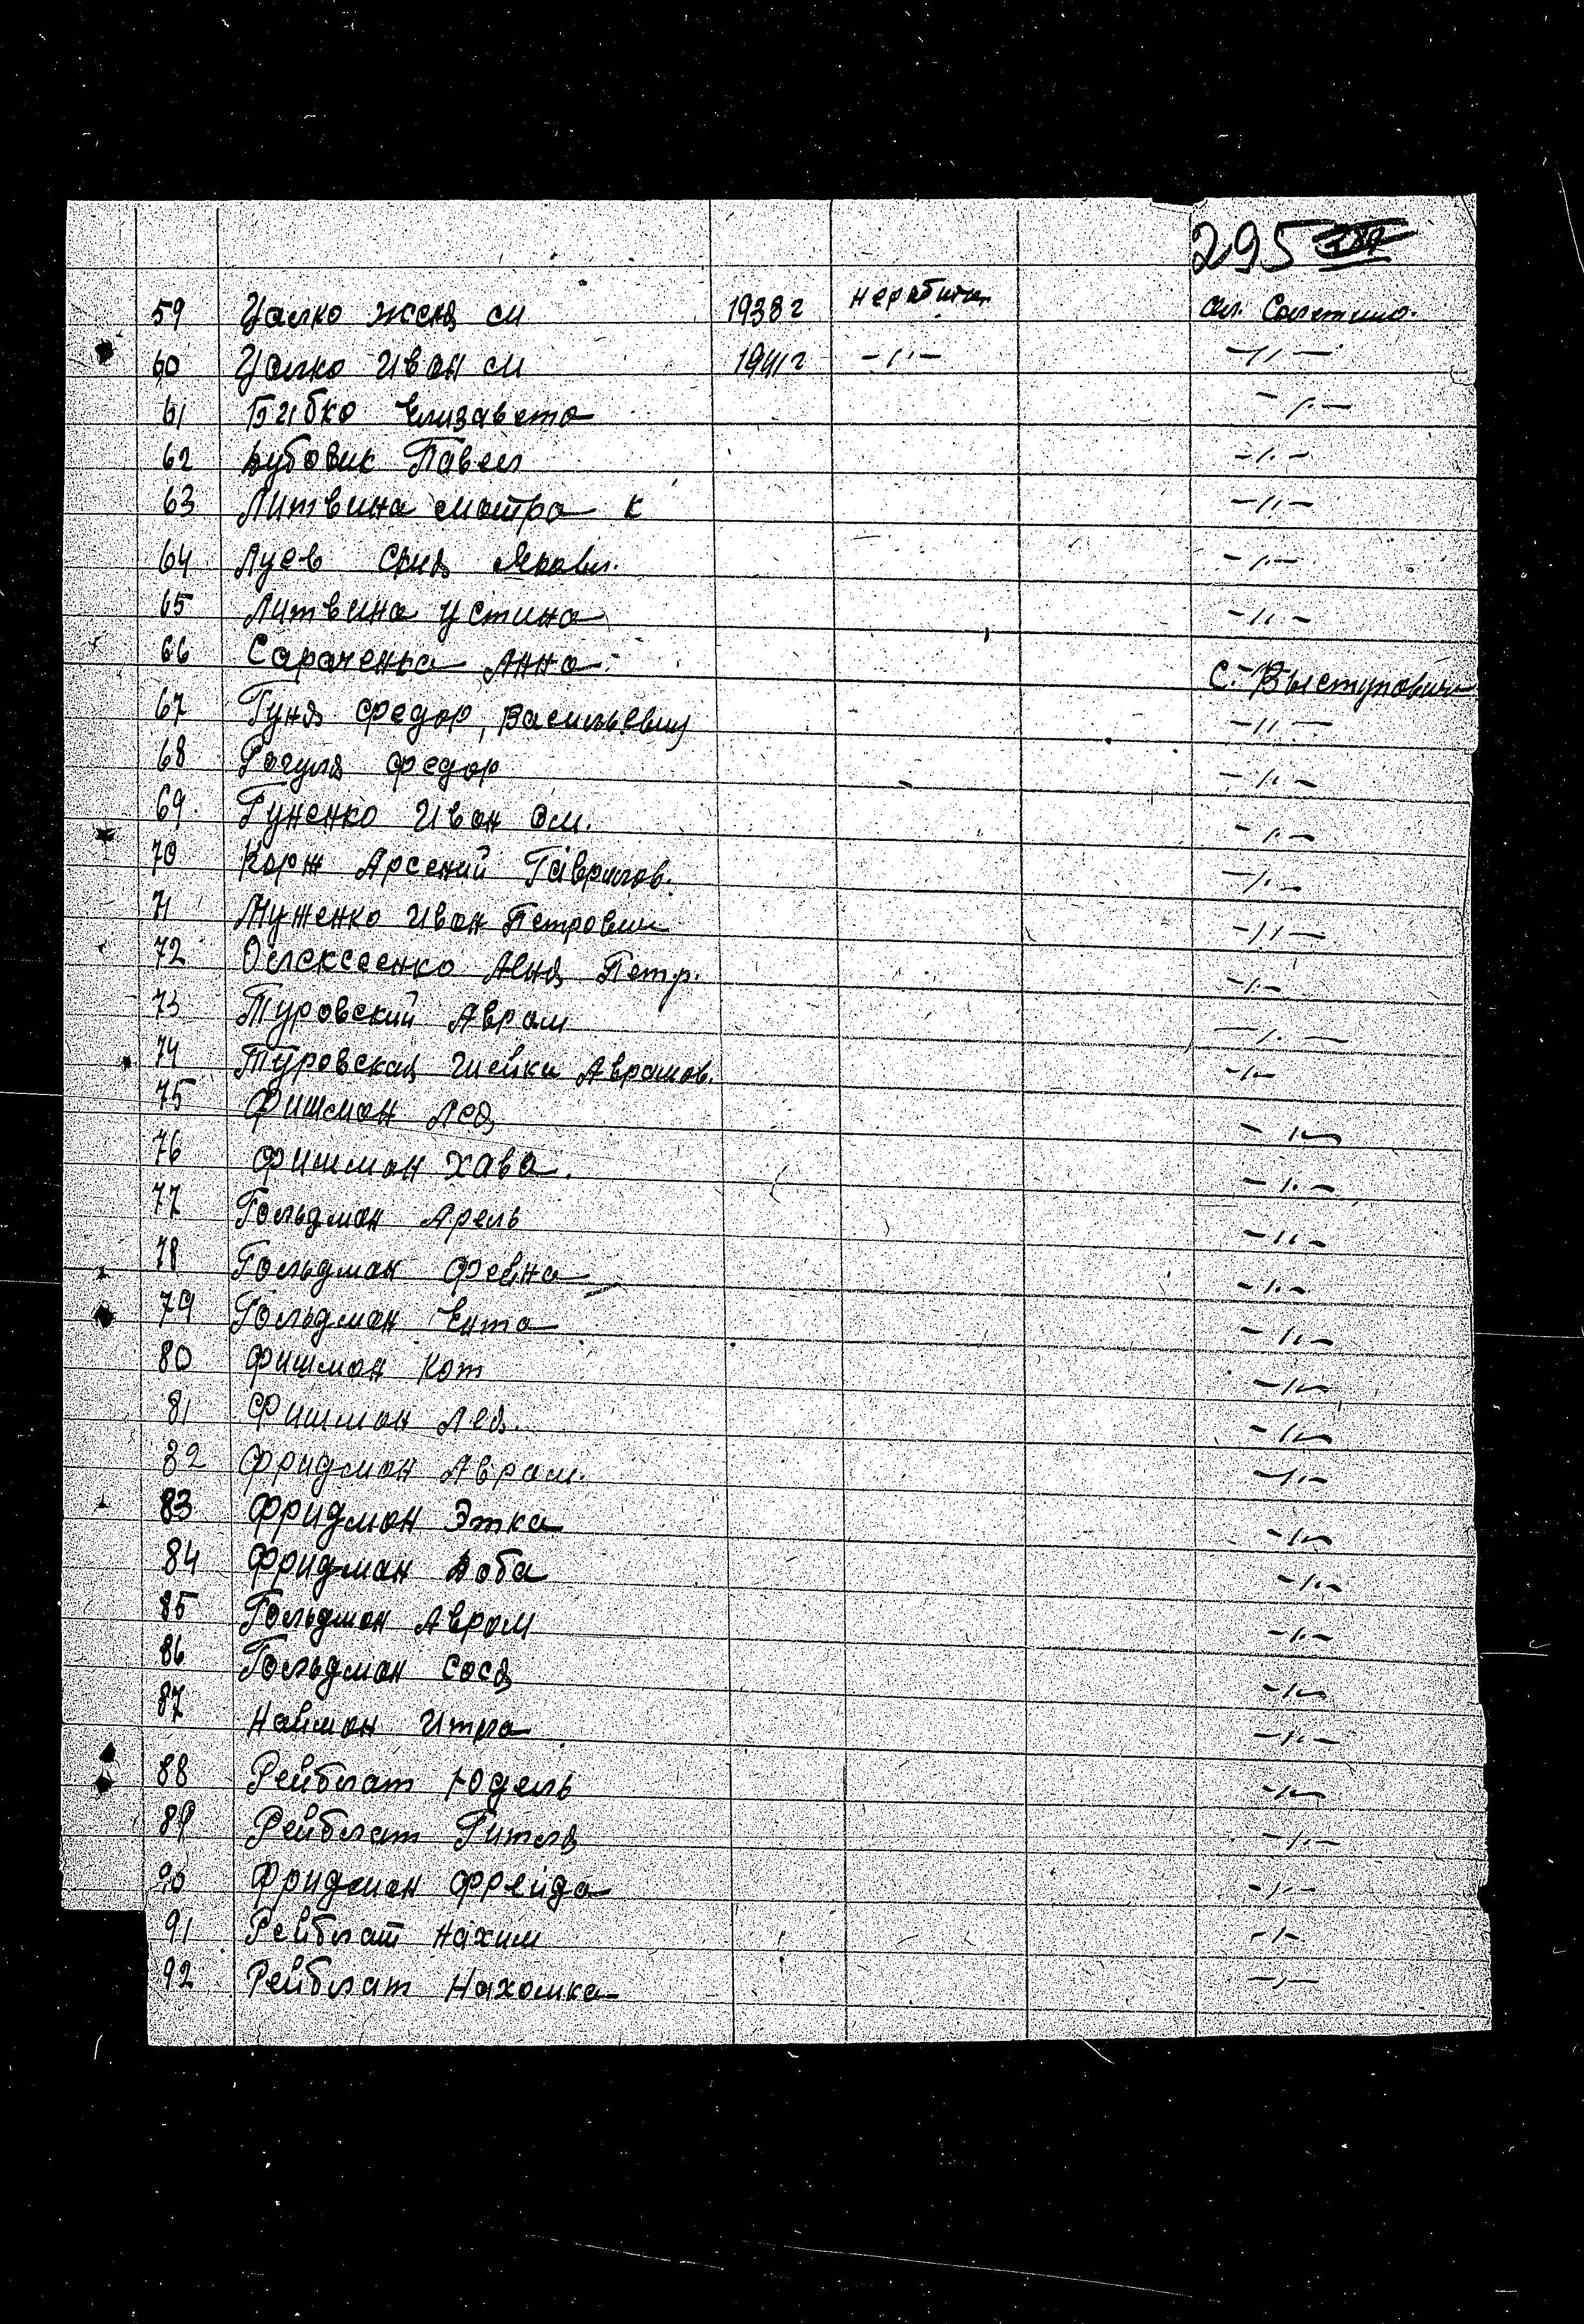 295
59 Цалко Женя М 1938 г неработн. ст. Салтино.
60 Цалко Иван М 1941 г -"- -"-
61 Бибко Елизавета -"-
62 Дубовик Павел -"-
63 Литвина Мотра К -"-
64 Луев Яковл. -"-
65 Литвина Устина -"-
66 Сараченко Анна С. Выступовичи
67 Гуня Федор, Васильевич -"-
68 Рогуля Федор -"-
69 Гуненко Иван Ем. -"-
70 Корж Арсений Гаврилов. -"-
71 Муженко Иван Петрович -"-
72 Олексеенко Петр. -"-
73 Туровский Аврам -"-
74 Туровская Шейка Аврамов. -"-
75 Фишман Лея -"-
76 Фишман Хава. -"-
77 Гольдман Арель -"-
78 Гольдман Фейна -"-
79 Гольдман Ента -"-
80 Фишман Кот -"-
81 Фишман Лея. -"-
82 Фридман Аврам. -"-
83 Фридман Этка -"-
84 Фридман Доба -"-
85 Гольдман Авром -"-
86 Гольдман Сося -"-
87 Найман Итла -"-
88 Рейблат Юдель -"-
89 Рейблат Гитля -"-
90 Фридман Фрейда -"-
91 Рейблат Нахим -"-
92 Рейблат Нахомка -"-